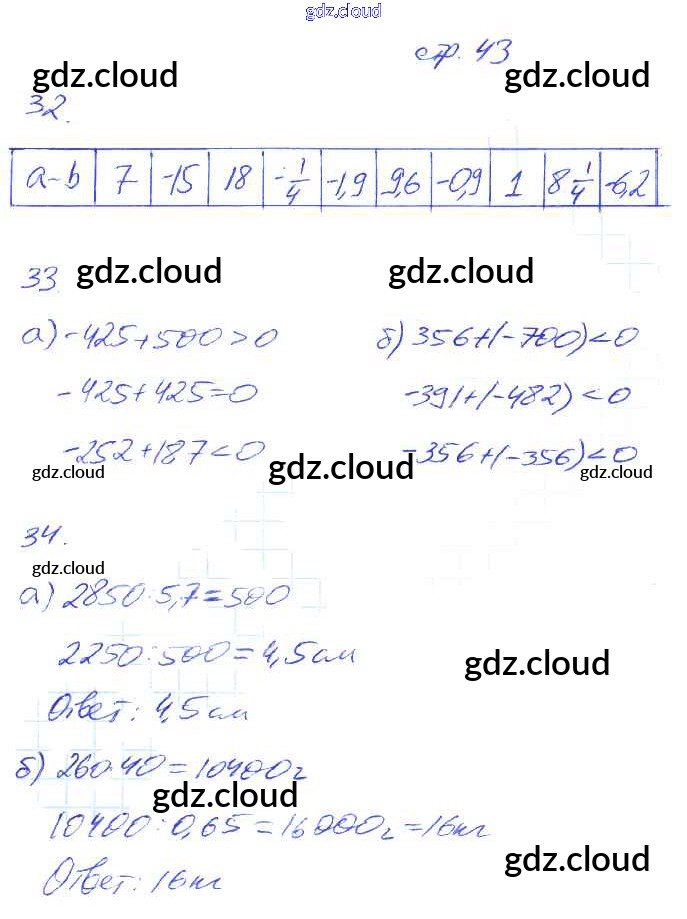 gdz.cloud
стр. 43
gdz.cloud gdz.cloud
32.
a-b 7 -15 18 -1/4 -1,9 9,6 -0,9 1 8 1/4 -6,2
33 gdz.cloud gdz.cloud
а) -425+500>0 б) 356+(-700)<0
-425+425=0 -391+(-482)<0
-252+187<0 -356+(-356)<0
gdz.cloud gdz.cloud gdz.cloud
34.
gdz.cloud
а) 2850:5,7=500
2250:500=4,5см
gdz.cloud
Ответ: 4,5см
б) 260·40=10400г
gdz.cloud
10400:0,65=16000г=16кг
gdz.cloud
Ответ: 16кг